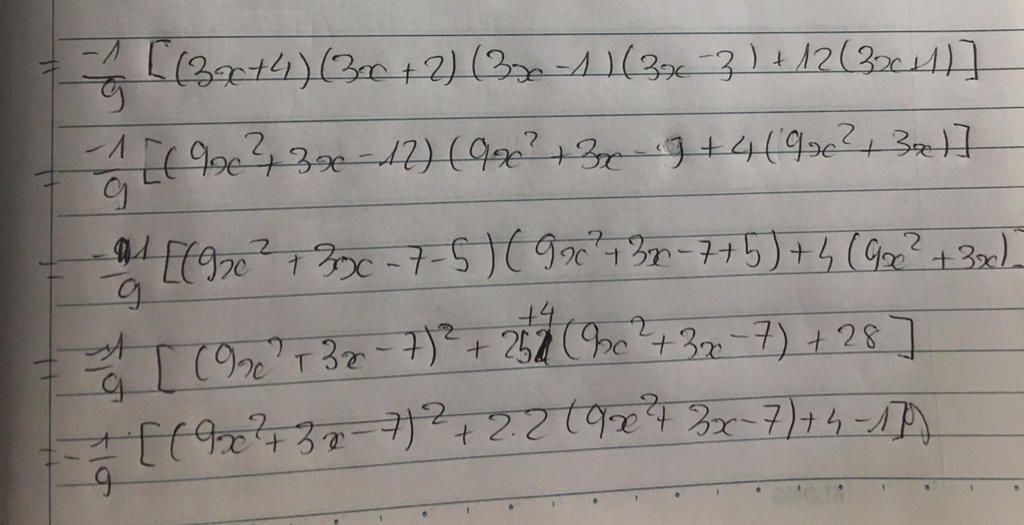 = -1/9 [(3x+4)(3x+2)(3x-1)(3x-3)+12(3x+1)]
= -1/9 [(9x²+3x-12)(9x²+3x- +4(9x²+3x)]
= -1/9 [(9x²+3x-7-5)(9x²+3x-7+5)+4(9x²+3x)]
= -1/9 [(9x²+3x-7)²+25+4(9x²+3x-7)+28]
= -1/9 [(9x²+3x-7)²+2.2(9x²+3x-7)+4-1